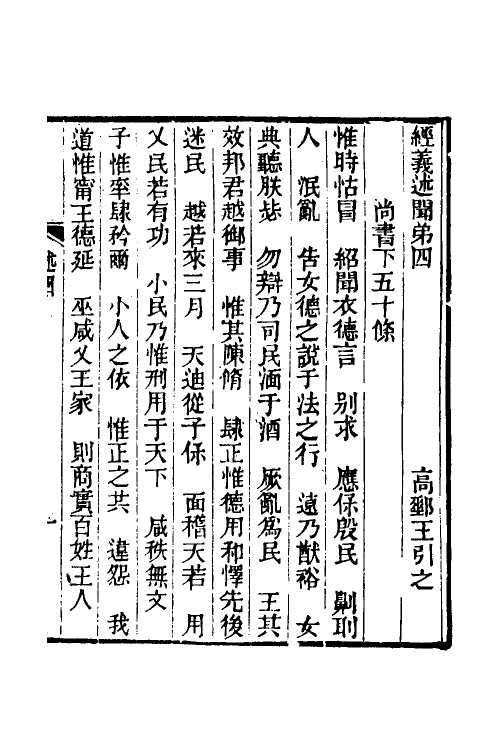 經義述聞弟四　高郵王引之
尚書下五十條
惟時怙冒　紹聞衣德言　別求　應保殷民　劓刵
人　泯亂　告女德之說于法之行　遠乃猷裕　女
典聽朕毖　勿辯乃司民湎于酒　厥亂爲民　王其
效邦君越御事　惟其陳脩　肆王惟德用和懌先後
迷民　越若來三月　天迪從子保　面稽天若　用
乂民若有功　小民乃惟刑用于天下　咸秩無文
子惟率肆矜爾　小人之依　惟正之共　違怨　我
道惟甯王德延　巫咸乂王家　則商實百姓王人
述四